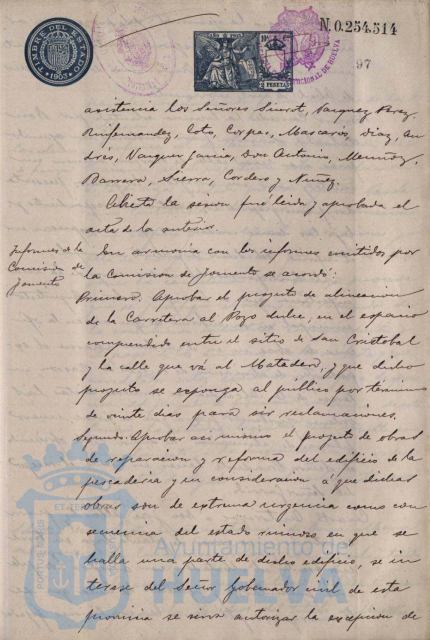 TIMBRE DEL ESTADO
1903
AÑO DE 1903
2 PESETAS
N.0.254.514
CONSTITUCIONAL DE HUELVA
97
asistencia los Señores Siurot, Vazquez Perez,
Ruifernandez, Coto, Corpas, Mascarós, Diaz, An
drés, Vazquez Garcia, Don Antonio, Muñoz,
Barrera, Sierra, Cordero y Nuñez.
Abierta la sesion fué leida y aprobada el
acta de la anterior.
Informes de la
Comision de
fomento
En armonia con los informes emitidos por
la Comision de fomento se acordó:
Primero. Aprobar el proyecto de alineacion
de la Carretera al Pozo dulce, en el espacio
comprendido entre el sitio de San Cristobal
y la calle que vá al Matadero, y que dicho
proyecto se exponga al público por término
de veinte dias para oir reclamaciones.
Segundo. Aprobar asi mismo el proyecto de obras
de reparacion y reforma del edificio de la
pescaderia y en consideracion á que dichas
obras son de extrema urgencia como con
secuencia del estado ruinoso en que se
halla una parte de dicho edificio, se in
terese del Señor Gobernador civil de esta
provincia se sirva autorizar la excepcion de
PORTUS MARIS ET TERRAE
Ayuntamiento de
HUELVA